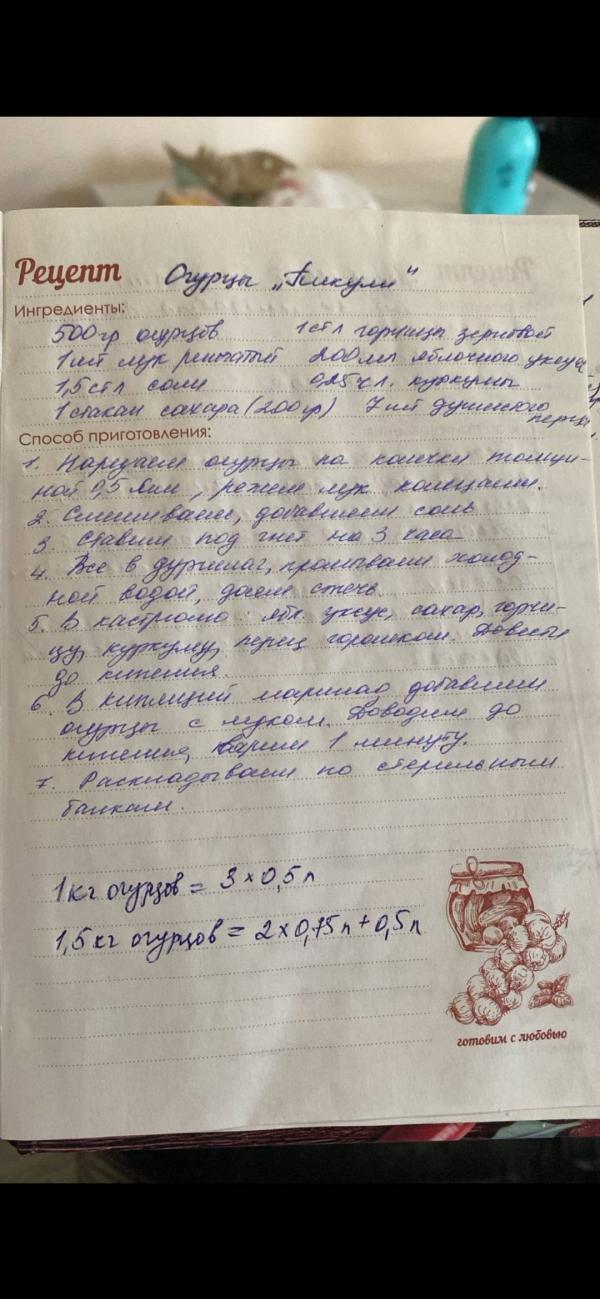 Рецепт Огурцы „Пикули"
Ингредиенты:
500гр огурцов 1 ст л горчицы зерновой
1 шт лук репчатый 200 мл яблочного уксуса
1,5 ст л соли 0,25 ч л. куркумы
1 стакан сахара (200 гр) 7 шт душистого
перца
Способ приготовления:
1. Нарезаем огурцы на колечки толщи-
ной 0,5 мм, режем лук кольцами.
2. Смешиваем, добавляем соль
3. Ставим под гнёт на 3 часа
4. Все в дуршлаг, промываем холод-
ной водой, даем стечь.
5. В кастрюлю: ябл. уксус, сахар, горчи-
цу, куркуму, перец горошком. Довести
до кипения.
6. В кипящий маринад добавляем
огурцы с луком. Доводим до
кипения, варим 1 минуту.
7. Раскладываем по стерильным
банкам.
1 кг огурцов = 3 × 0,5 л
1,5 кг огурцов = 2 × 0,75 л + 0,5 л
готовим с любовью